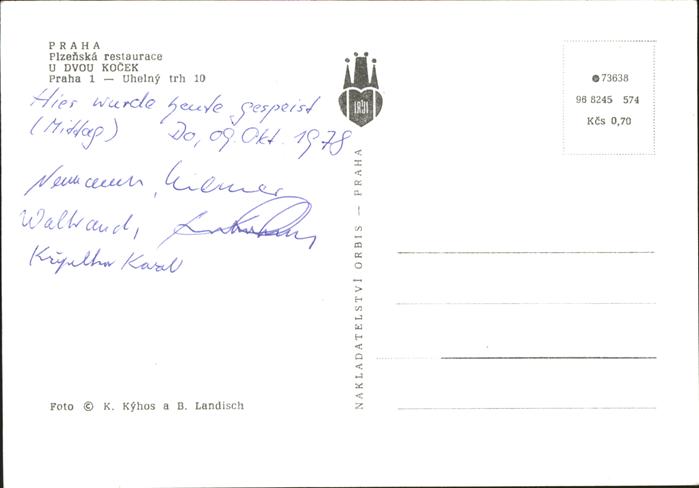 PRAHA
Plzeňská restaurace
U DVOU KOČEK
Praha 1 — Uhelný trh 10
Hier wurde heute gespeist
(Mittag) Do, 09. Okt. 1978
Waltraud,
Karel
Foto © K. Kýhos a B. Landisch
1831
NAKLADATELSTVÍ ORBIS — PRAHA
73638
96 8245 574
Kčs 0,70